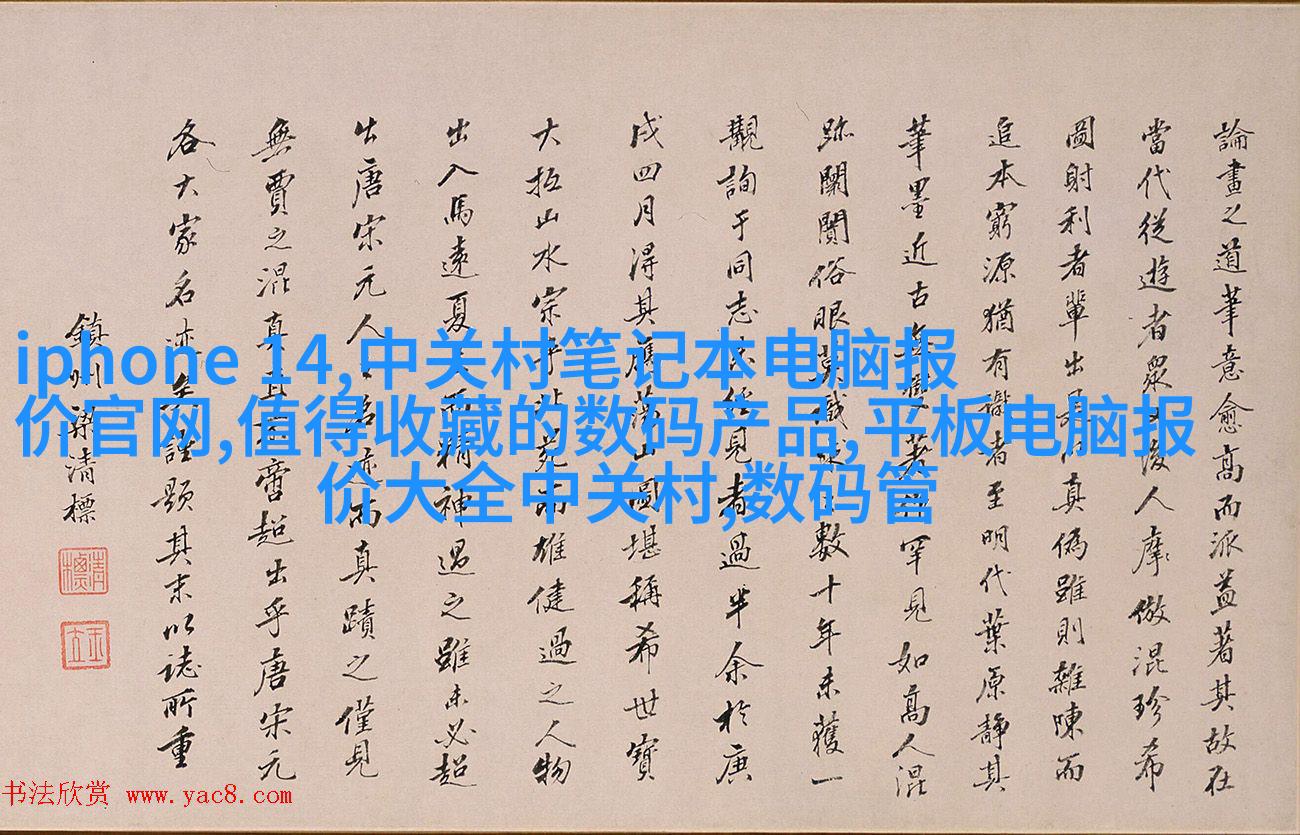 論畫之道筆意愈高而派益著其故在
當代從遊者衆以後人摩倣混珍希
圖射利者輩出眞偽雖則雜陳而
追本窮源猶有識者至明代葉原靜其
筆墨近古罕見如高人混
跡闤闠俗眼莫識數十年未獲一
觀詢于同志見者過半余於庚
戌四月得其圖堪稱希世寶
大抵山水宗乎而雄健過之人物
出入馬遠夏精神過之雖未必超
出唐宋元人而真蹟之僅見
無賈之混真超出乎唐宋元
各大家名迹題其末以誌所重
鎮州梁清標
iphone 14,中关村笔记本电脑报
价官网,值得收藏的数码产品,平板电脑报
价大全中关村,数码管
书法欣赏 www.yac8.com